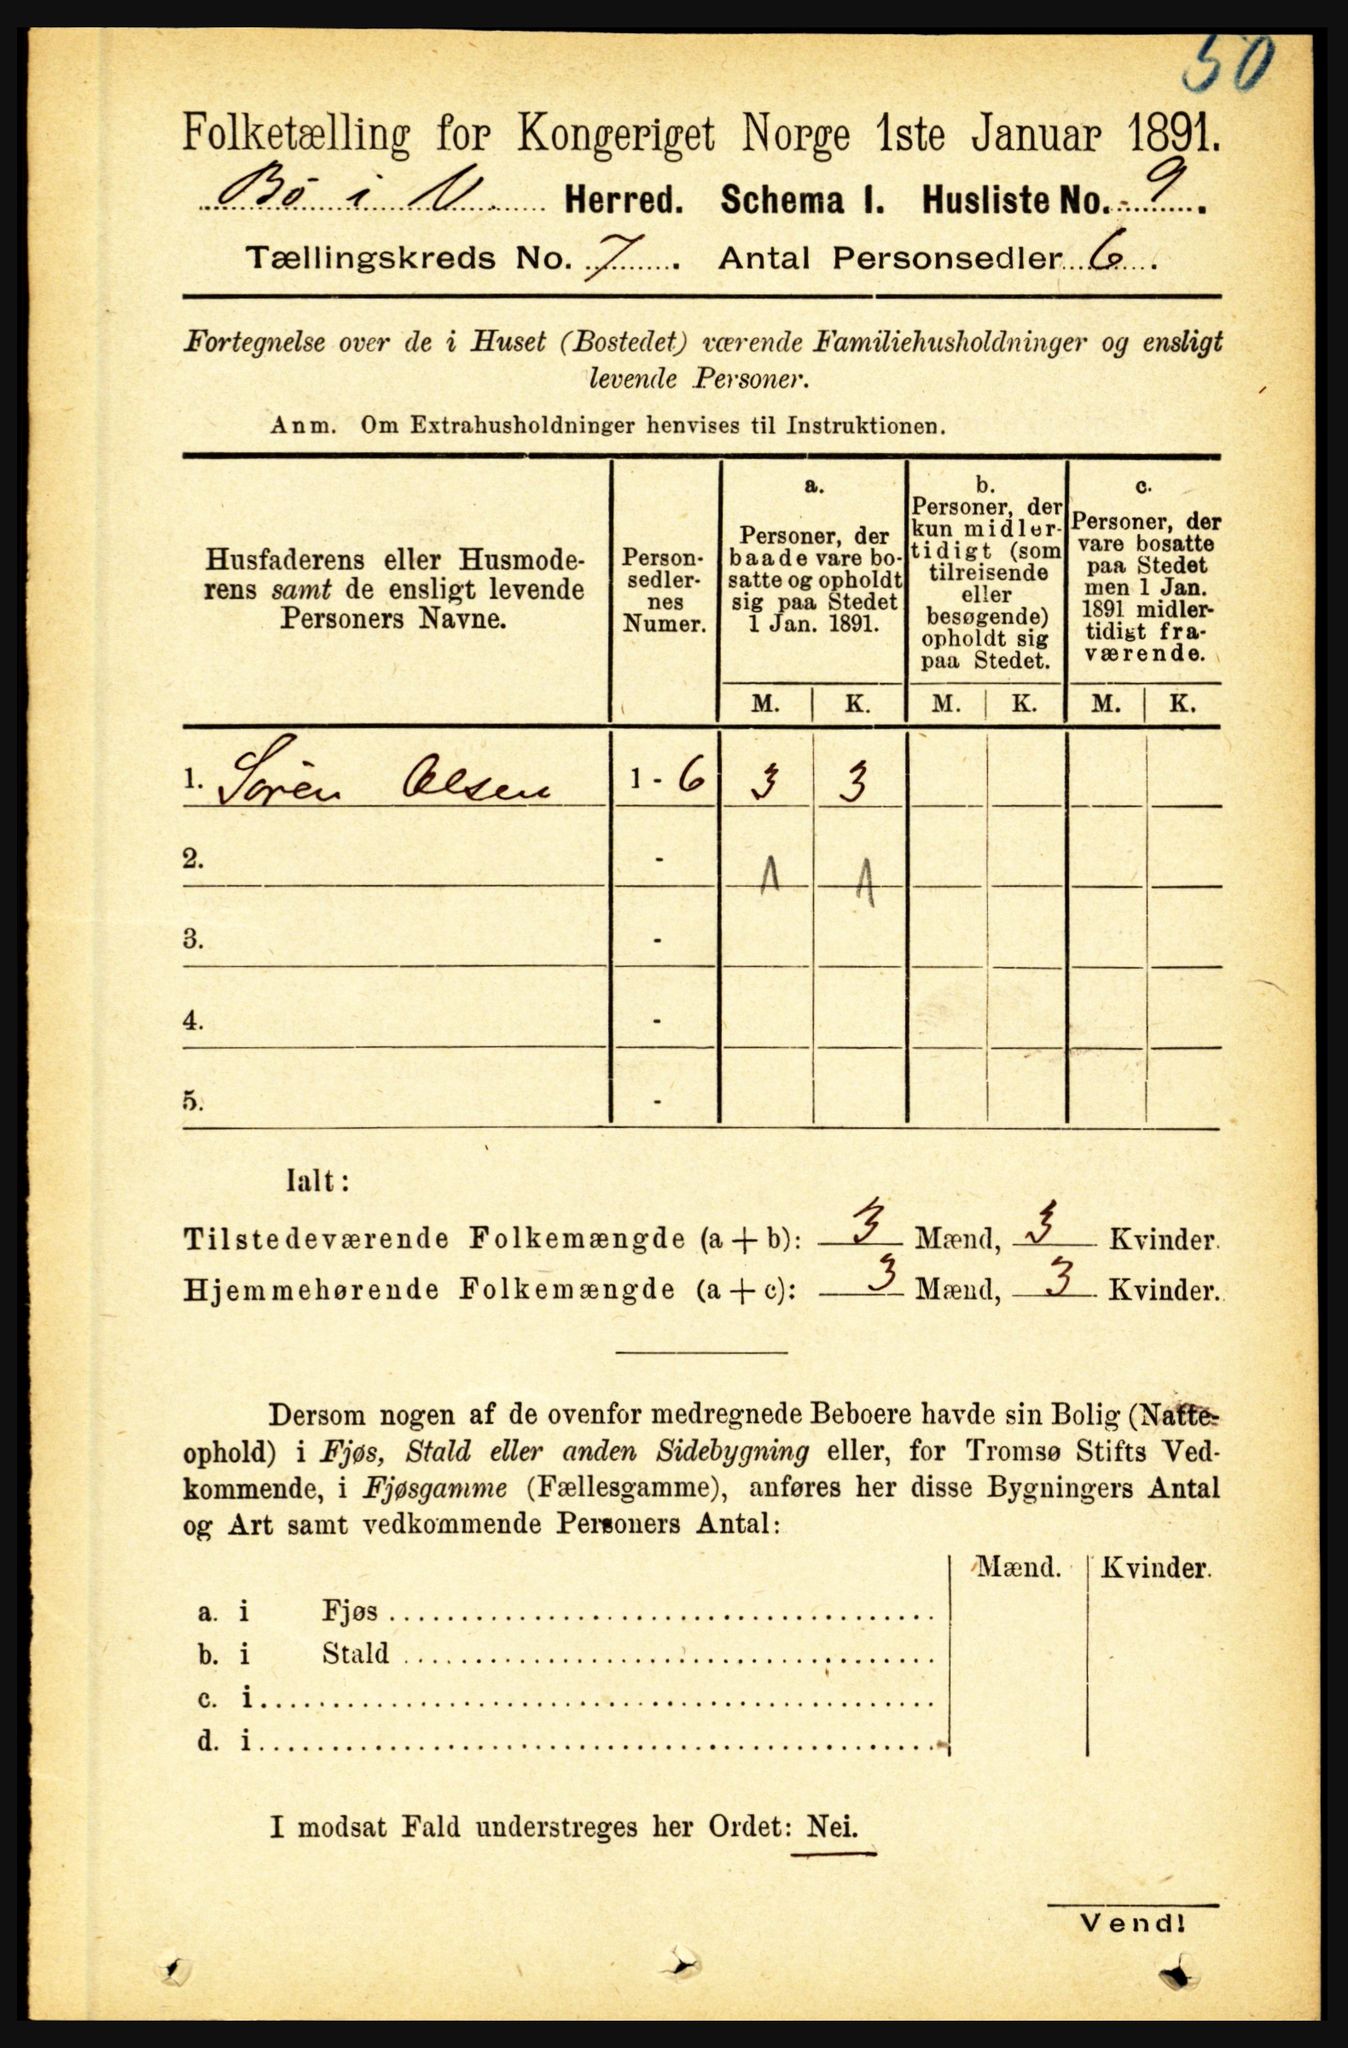 50
Folketælling for Kongeriget Norge 1ste Januar 1891.
Bö i V. Herred. Schema I. Husliste No. 9.
Tællingskreds No. 7. Antal Personsedler 6.
Fortegnelse over de i Huset (Bostedet) værende Familiehusholdninger og ensligt
levende Personer.
Anm. Om Extrahusholdninger henvises til Instruktionen.
Husfaderens eller Husmode-
rens samt de ensligt levende
Personers Navne.
Person-
sedler-
nes
Numer.
a.
Personer, der
baade vare bo-
satte og opholdt
sig paa Stedet
1 Jan. 1891.
b.
Personer, der
kun midler-
tidigt (som
tilreisende
eller
besøgende)
opholdt sig
paa Stedet.
c.
Personer, der
vare bosatte
paa Stedet
men 1 Jan.
1891 midler-
tidigt fra-
værende.
M. K. M. K. M. K.
1. Sören Olsen 1 - 6 3 3
2. - 1 1
3. -
4. -
5. -
Ialt:
Tilstedeværende Folkemængde (a + b): 3 Mænd, 3 Kvinder.
Hjemmehørende Folkemængde (a + c): 3 Mænd, 3 Kvinder.
Dersom nogen af de ovenfor medregnede Beboere havde sin Bolig (Natte-
ophold) i Fjøs, Stald eller anden Sidebygning eller, for Tromsø Stifts Ved-
kommende, i Fjøsgamme (Fællesgamme), anføres her disse Bygningers Antal
og Art samt vedkommende Personers Antal:
Mænd. Kvinder.
a. i Fjøs
b. i Stald
c. i
d. i
I modsat Fald understreges her Ordet: Nei.
Vend!